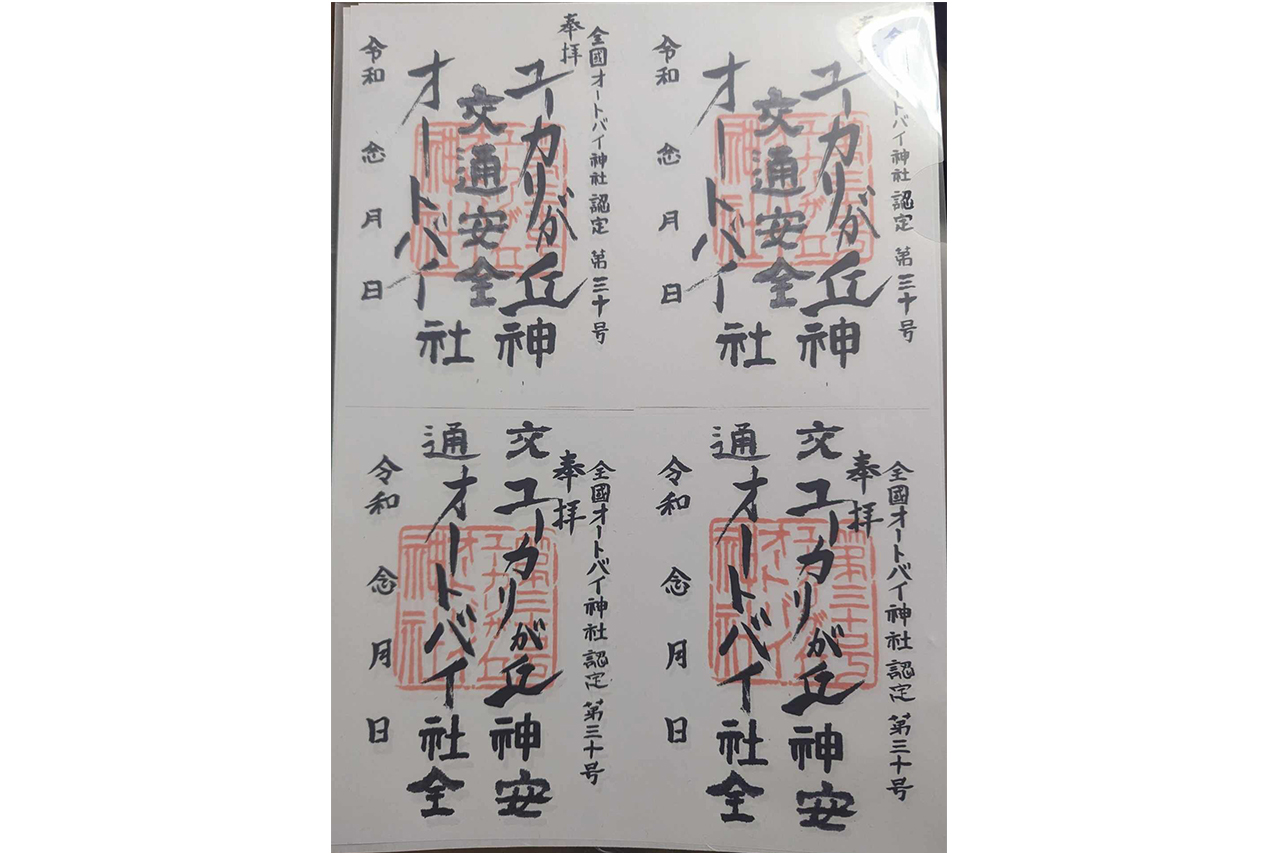 トバイ神社 認定 第三十号
ユーカリが丘神
交通安全
オートバイ社
令和 念 月 日
全國オートバイ神社 認定 第三十号
奉拝
ユーカリが丘神
交通安全
オートバイ社
令和 念 月 日
全國オートバイ神社 認定 第三十号
奉拝
交ユーカリが丘神安
通オートバイ社全
第三十号
ユーカリが丘
オートバイ
神社
令和 念 月 日
全國オートバイ神社 認定 第三十号
奉拝
交ユーカリが丘神安
通オートバイ社全
第三十号
ユーカリが丘
オートバイ
神社
令和 念 月 日